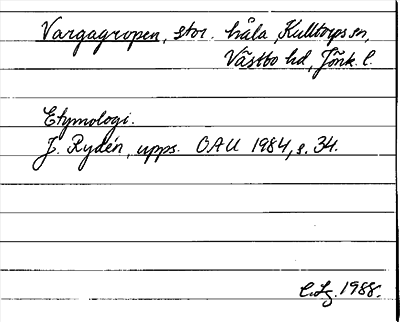 Vargagropen, stor håla, Kulltorps sn,
Västbo hd, Jönk. l.
Etymologi.
J. Rydén, upps. OAU 1984, s. 34.
C.Lg. 1988.